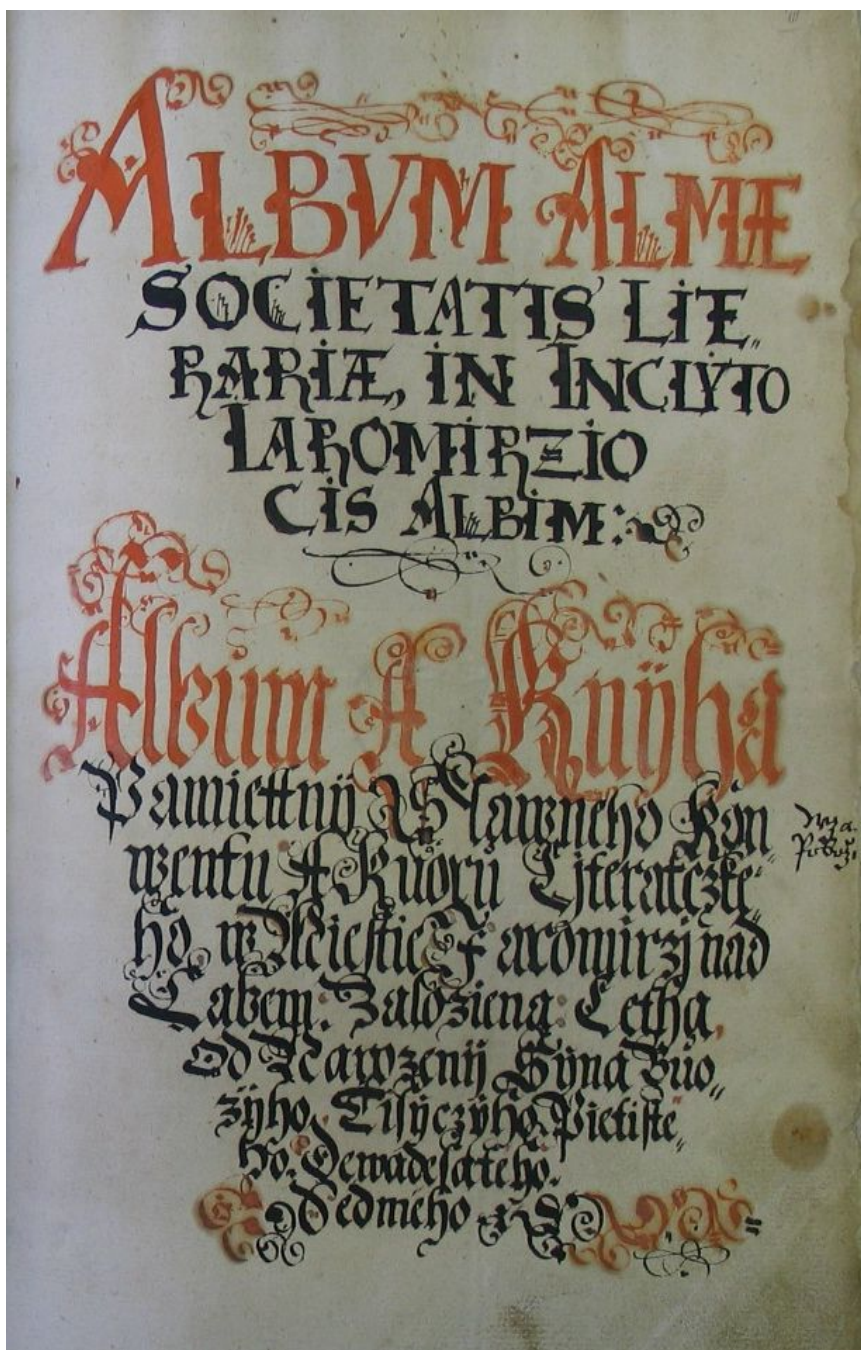 ALBVM ALMÆ
SOCIETATIS LITE„
RARIÆ, IN INCLYTO
IAROMIRZIO
CIS ALBIM:
Album A Knÿha
Pamiettnij Slawneho Kon
wentu A Kuoru Literatczke„
ho, w Miestie Jaromirzj nad
Labem: Zaloziena: Letha,
Od Narozenij Sÿna Buo„
zÿho, Tisÿczÿho, Pietiste„
ho: Dewadesateho.
Sedmeho